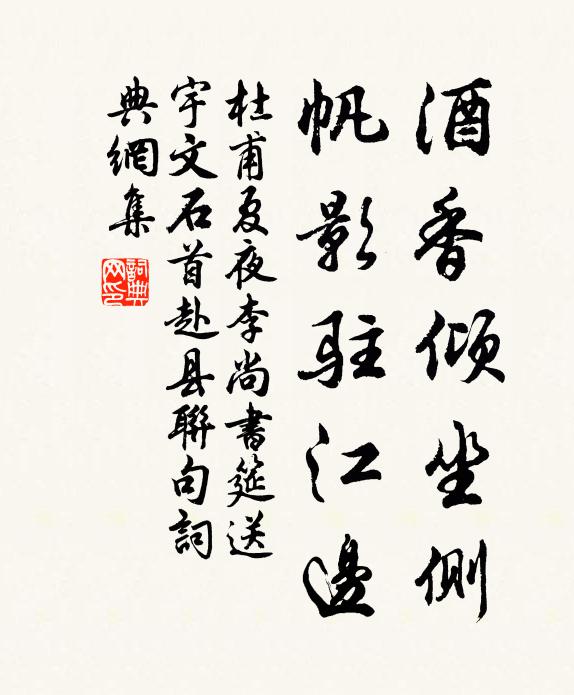 酒香倾坐侧
帆影驻江邊
杜甫夏夜李尚書筵送
宇文石首赴县聯句詞
典網集
詞典网印